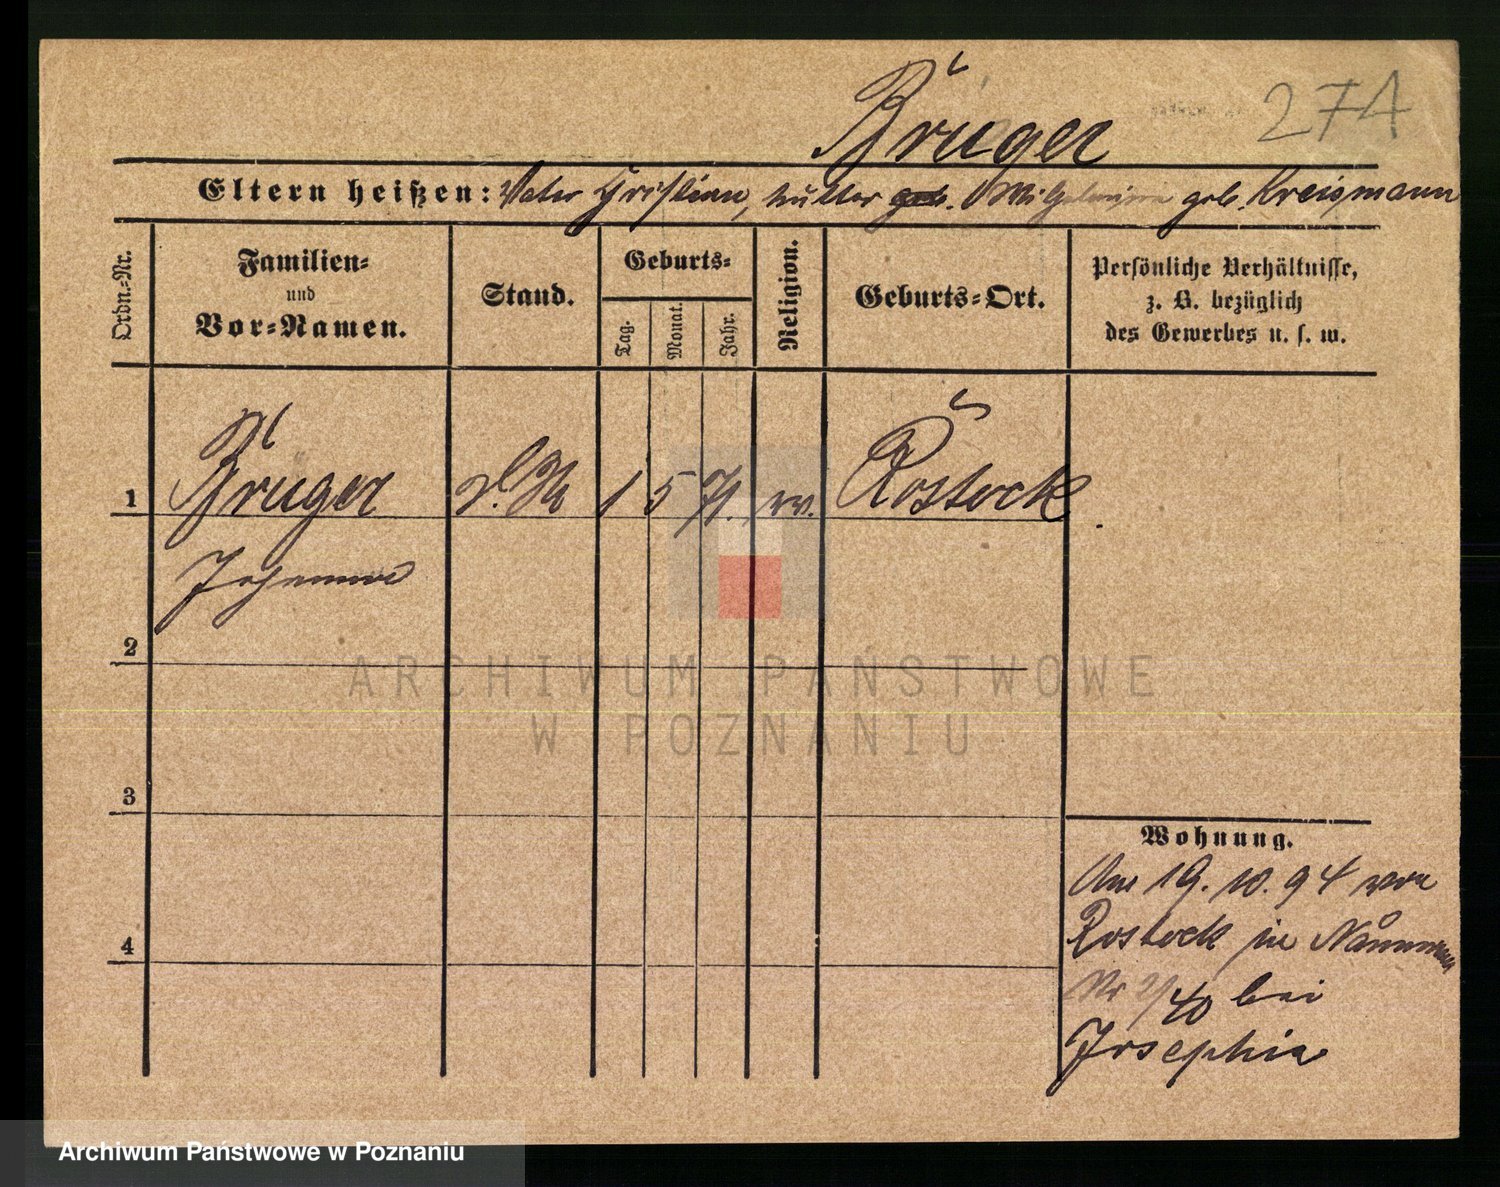 Brüger
274
Eltern heißen: Vater Christian, Mutter geb. Wilhelmine geb. Kreismann
Ordn.-Nr.
Familien-
und
Vor-Namen.
Stand.
Geburts-
Tag.
Monat.
Jahr.
Religion.
Geburts-Ort.
Persönliche Verhältnisse,
z. B. bezüglich
des Gewerbes u. s. w.
1 Brüger 1 5 71. Rostock.
Johanna
2
3
4
Wohnung.
Am 19. 10. 94 von
Rostock in
Nr 2/40 bei
Josephia
ARCHIWUM PAŃSTWOWE
W POZNANIU
Archiwum Państwowe w Poznaniu